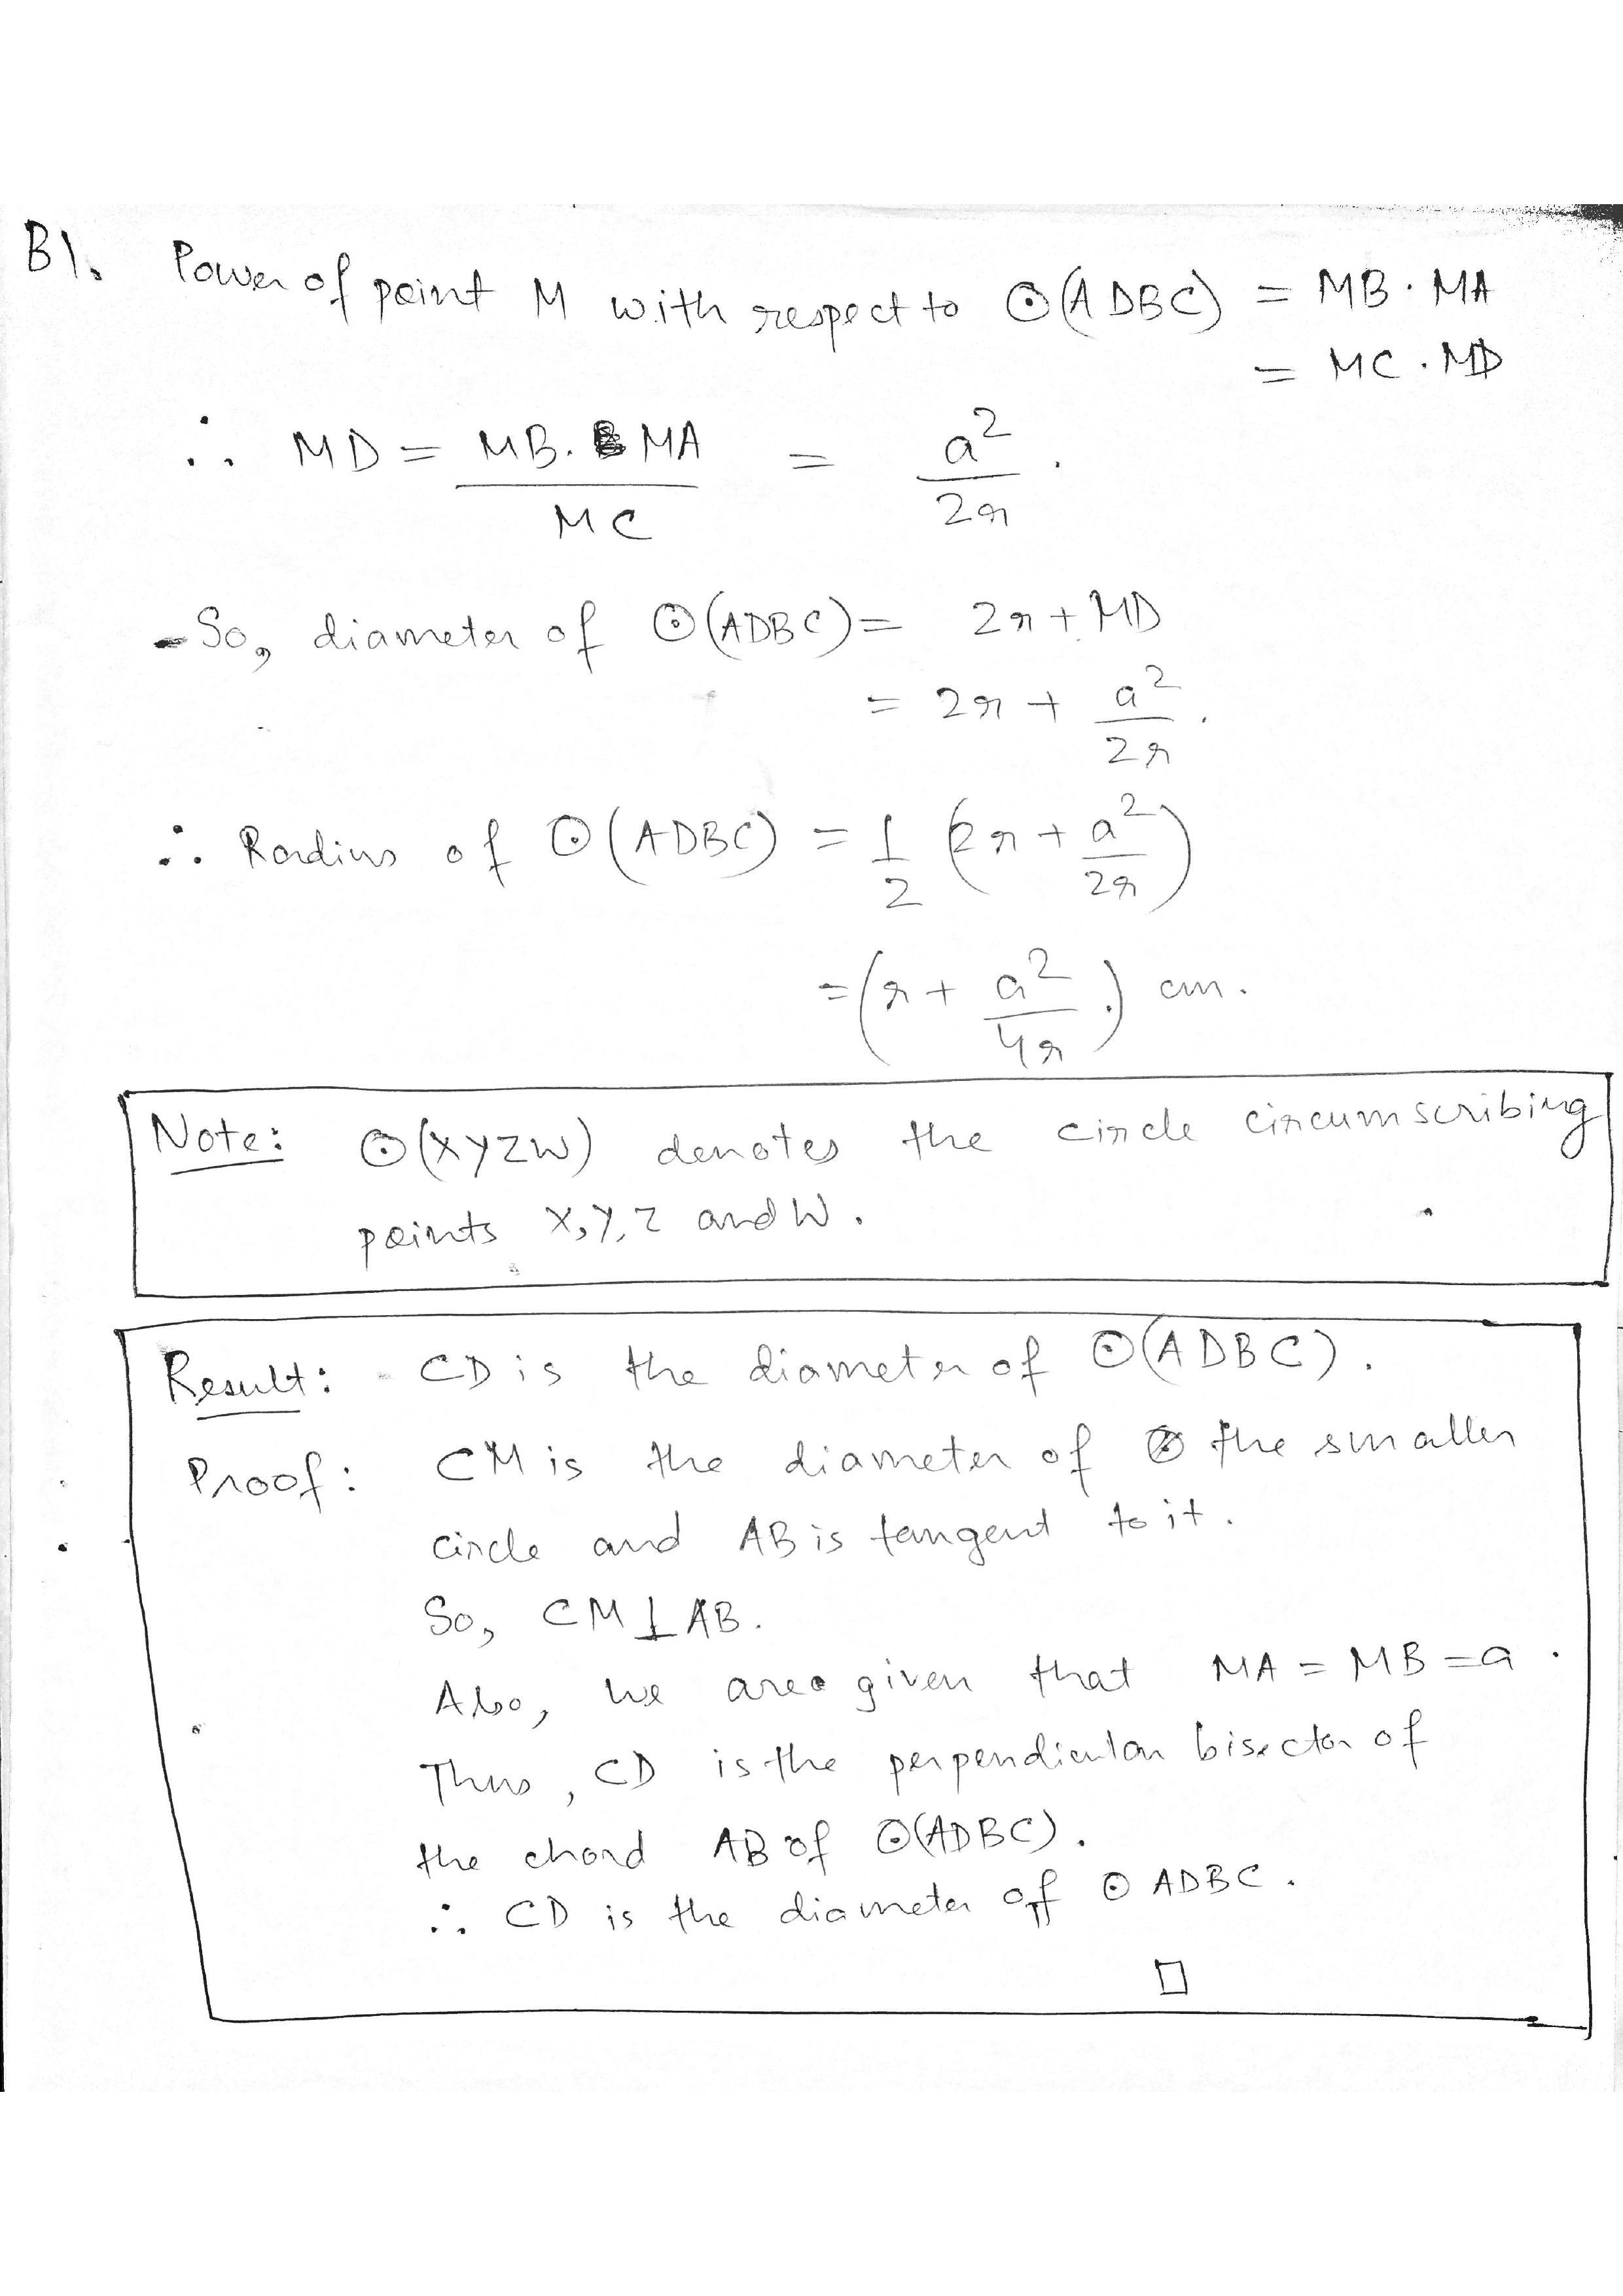 B1. Power of point M with respect to ⊙(ADBC) = MB·MA
= MC·MD
∴ MD = MB·MA / MC = a²/2r.
So, diameter of ⊙(ADBC) = 2r + MD
= 2r + a²/2r.
∴ Radius of ⊙(ADBC) = 1/2 (2r + a²/2r)
= (r + a²/4r) cm.
Note: ⊙(XYZW) denotes the circle circumscribing
points X, Y, Z and W.
Result: CD is the diameter of ⊙(ADBC).
Proof: CM is the diameter of the smaller
circle and AB is tangent to it.
So, CM ⊥ AB.
Also, we are given that MA = MB = a.
Thus, CD is the perpendicular bisector of
the chord AB of ⊙(ADBC).
∴ CD is the diameter of ⊙ ADBC.
□